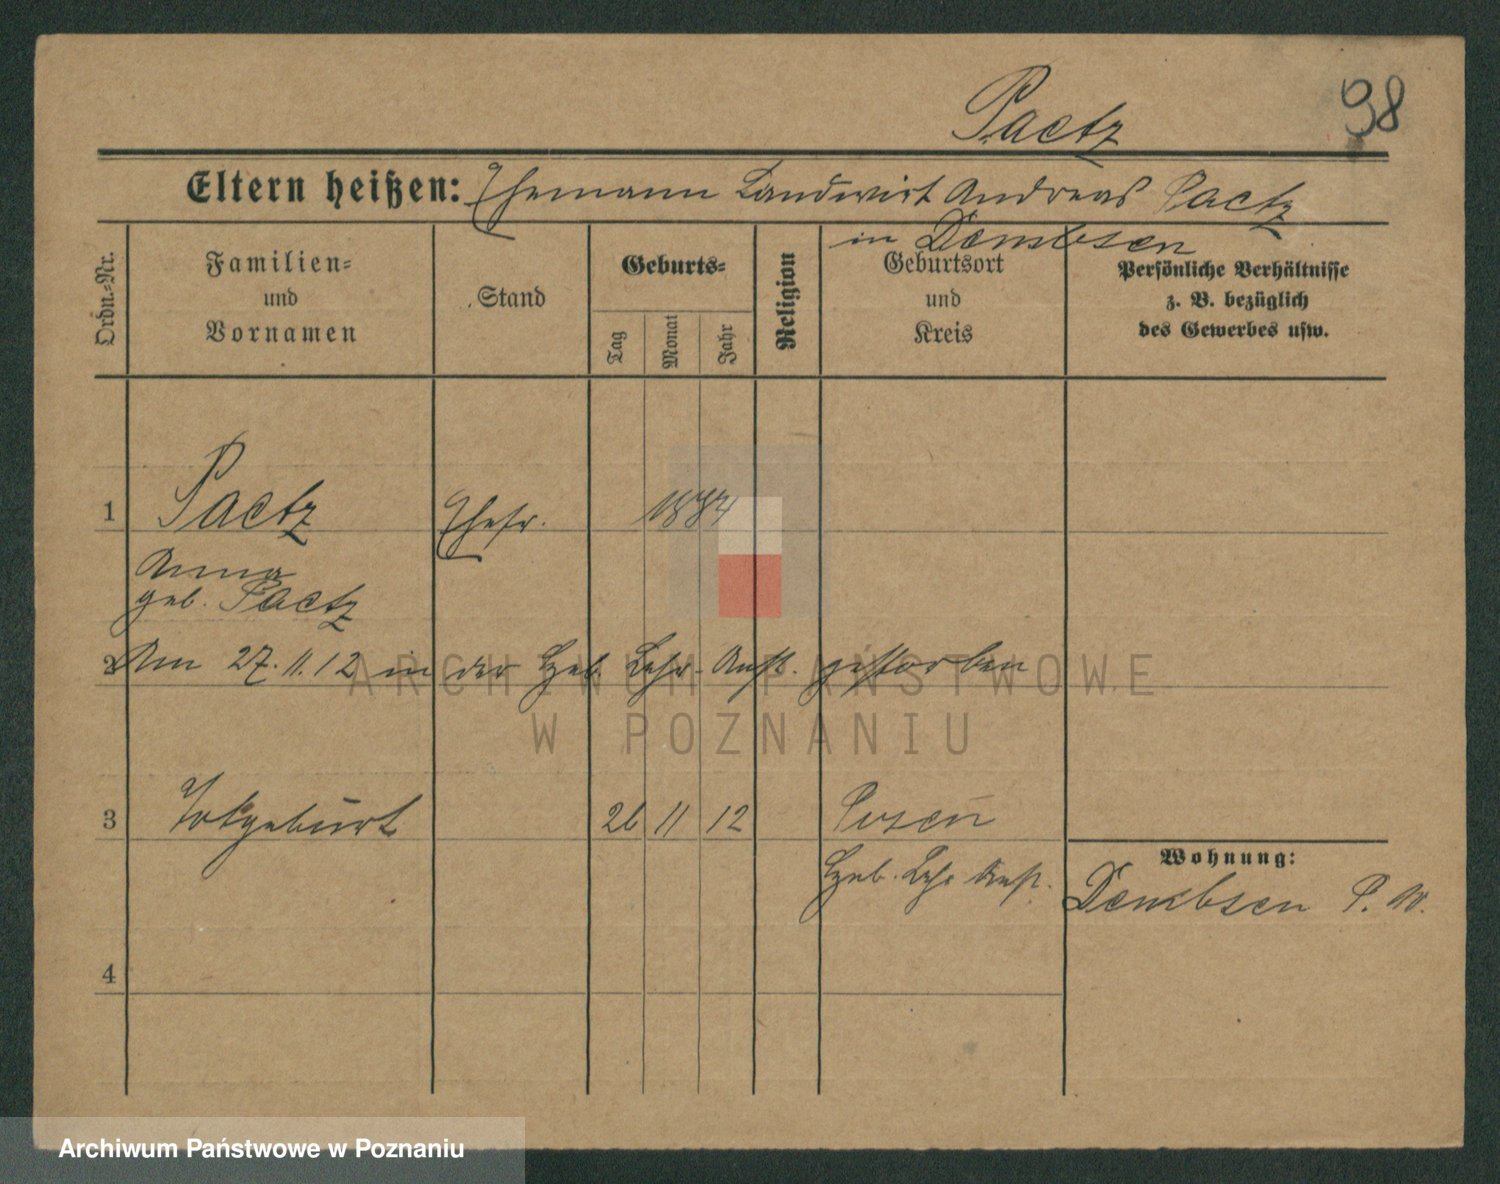 Paetz
98
Eltern heißen: Ehemann Landwirt Andreas Paetz
in Dembsen
Ordn.-Nr.
Familien-
und
Vornamen
Stand
Geburts-
Tag
Monat
Jahr
Religion
Geburtsort
und
Kreis
Persönliche Verhältnisse
z. B. bezüglich
des Gewerbes usw.
1 Paetz Ehefr. 1884
Anna
geb. Paetz
2 Am 27.11.12 in der Heb. Lehr-Anst. gestorben
ARCHIWUM PAŃSTWOWE
W POZNANIU
3 Totgeburt 26 11 12 Posen
Heb. Lehr Anst.
Wohnung:
Dembsen P. W.
4
Archiwum Państwowe w Poznaniu